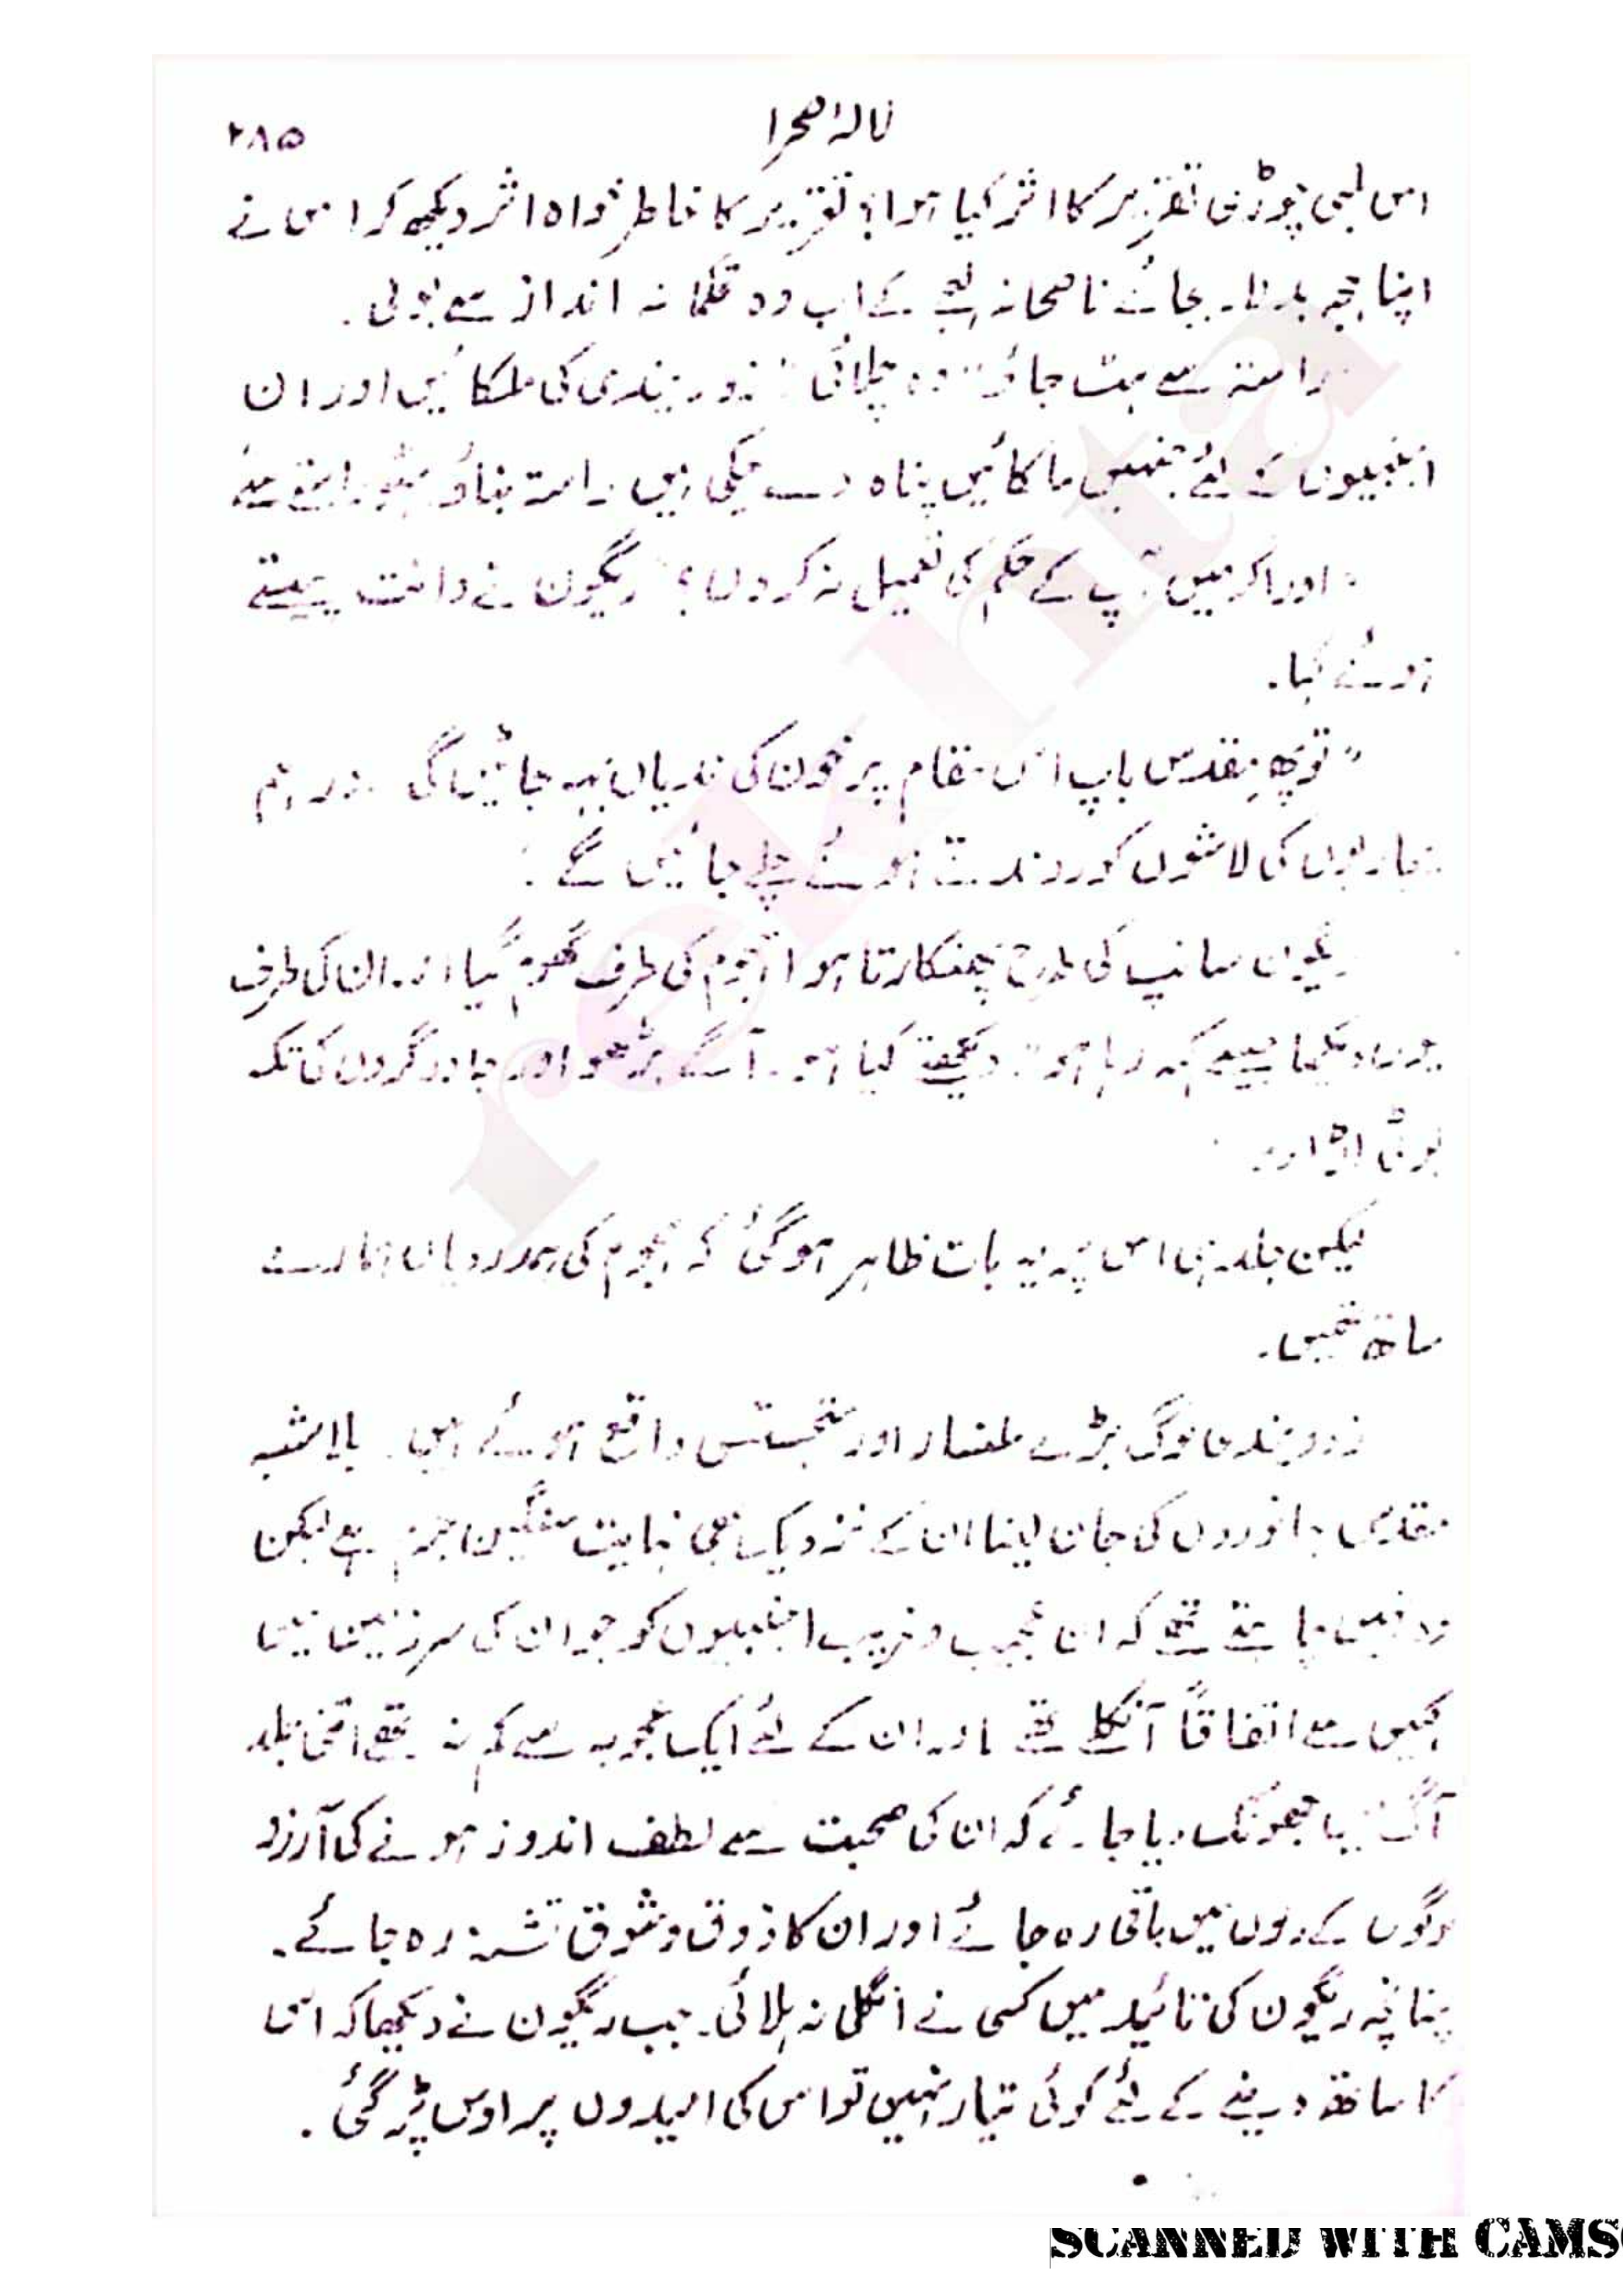 نالۂ صحرا
۲۸۵
اس لمبی چوڑی تقریر کا اثر کیا ہوا؟ تقریر کا خاطر خواہ اثر دیکھ کر اس نے
اپنا لہجہ بدلا۔ بجائے ناصحانہ لہجے کے اب وہ تحکمانہ انداز سے بولی۔
راستہ سے ہٹ جاؤ" وہ چلائی "زوویندی کی ملکائیں اور ان
اجنبیوں کے لئے جنہیں ملکائیں پناہ دے چکی ہیں راستہ بناؤ ہٹو راستے سے
"اور اگر میں آپ کے حکم کی تعمیل نہ کروں؟" ریگون نے دانت پیستے
ہوئے کہا۔
"تو پھر مقدس باپ اس مقام پر خون کی ندیاں بہہ جائیں گی اور ہم
پجاریوں کی لاشوں کو روندتے ہوئے چلے جائیں گے۔
ریگون سانپ کی طرح پھنکارتا ہوا ہجوم کی طرف گھوم گیا اور ان کی طرف
یوں دیکھا جیسے کہہ رہا ہو "دیکھتے کیا ہو۔ آگے بڑھو اور جادوگروں کی تکہ
بوٹی اڑا دو۔
لیکن جلد ہی اس پر یہ بات ظاہر ہو گئی کہ ہجوم کی ہمدردیاں ہمارے
ساتھ تھیں۔
زوویندی لوگ بڑے ملنسار اور متجسس واقع ہوئے ہیں۔ بلاشبہ
مقدس جانوروں کی جان لینا ان کے نزدیک بھی نہایت سنگین جرم ہے لیکن
وہ نہیں چاہتے تھے کہ ان عجیب و غریب اجنبیوں کو جو ان کی سرزمین میں
کہیں سے اتفاقاً آنکلے تھے اور ان کے لئے ایک عجوبہ سے کم نہ تھے اتنی جلد
آگ میں جھونک دیا جائے کہ ان کی صحبت سے لطف اندوز ہونے کی آرزو
لوگوں کے دلوں میں باقی رہ جائے اور ان کا ذوق و شوق تشنہ رہ جائے۔
چنانچہ ریگون کی تائید میں کسی نے انگلی نہ ہلائی۔ جب ریگون نے دیکھا کہ اس
کا ساتھ دینے کے لئے کوئی تیار نہیں تو اس کی امیدوں پر اوس پڑ گئی۔
rekhta
SCANNED WITH CAMS